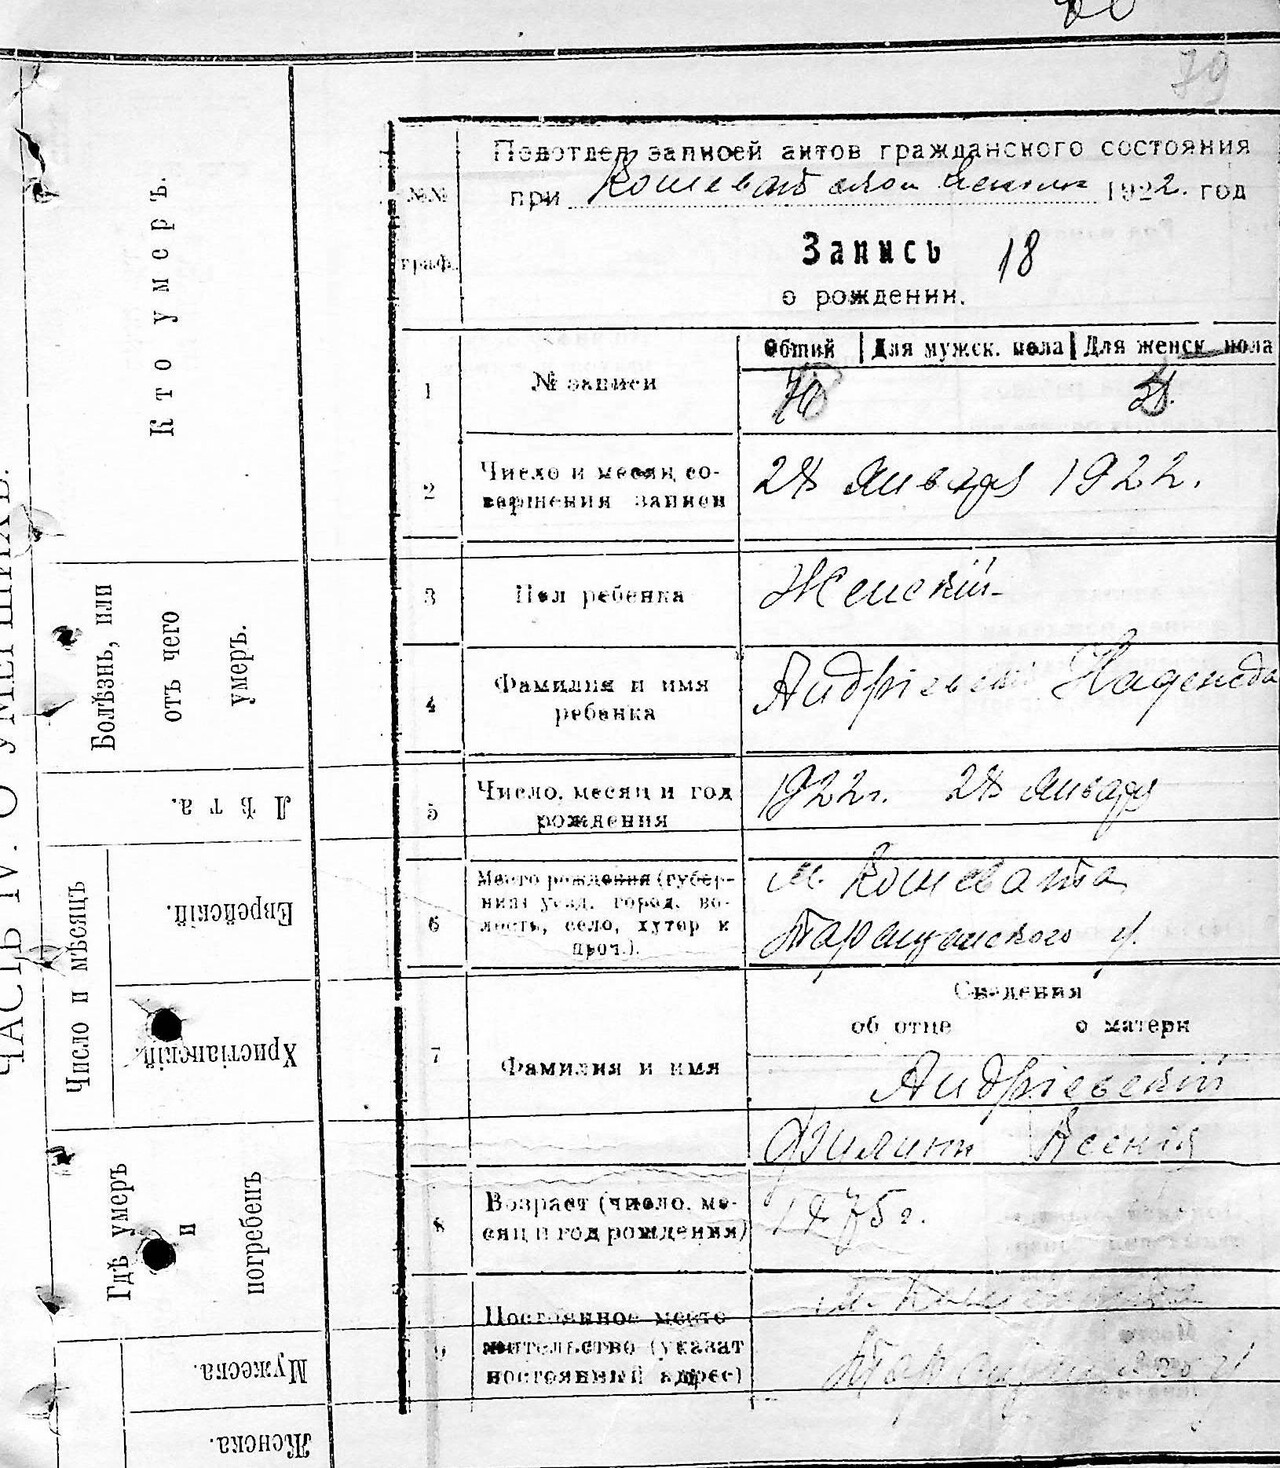 79
Подотдел записей актов гражданского состояния
при Кошеватской 1922. год
№№ граф.
Запись 18
о рождении.
Общий | Для мужск. пола | Для женск. пола
1 № записи
2 Число и месяц со-
вершения записи
28 января 1922.
3 Пол ребенка Женскій
4 Фамилия и имя
ребенка
Андріевскі Надежда
5 Число, месяц и год
рождения
1922 г. 28 января
6 Место рождения (губер-
ния уезд, город, во-
лость, село, хутор и
проч.).
м. Кошевата
Таращанского у.
Сведения
об отце о матери
7 Фамилия и имя
Андріевскій
Филипп Ксенія
8 Возраст (число, ме-
сяц и год рождения)
1875 г.
9 Постоянное место
жительство (указат
постоянный адрес)
м. Кошевата
Таращанского у
ЧАСТЬ IV. О УМЕРШИХЪ.
Кто умеръ.
Болѣзнь, или
отъ чего
умеръ.
Лѣта.
Число и мѣсяцъ
Еврейскій.
Христіанскій.
Гдѣ умеръ
и
погребенъ
Мужеска.
Женска.